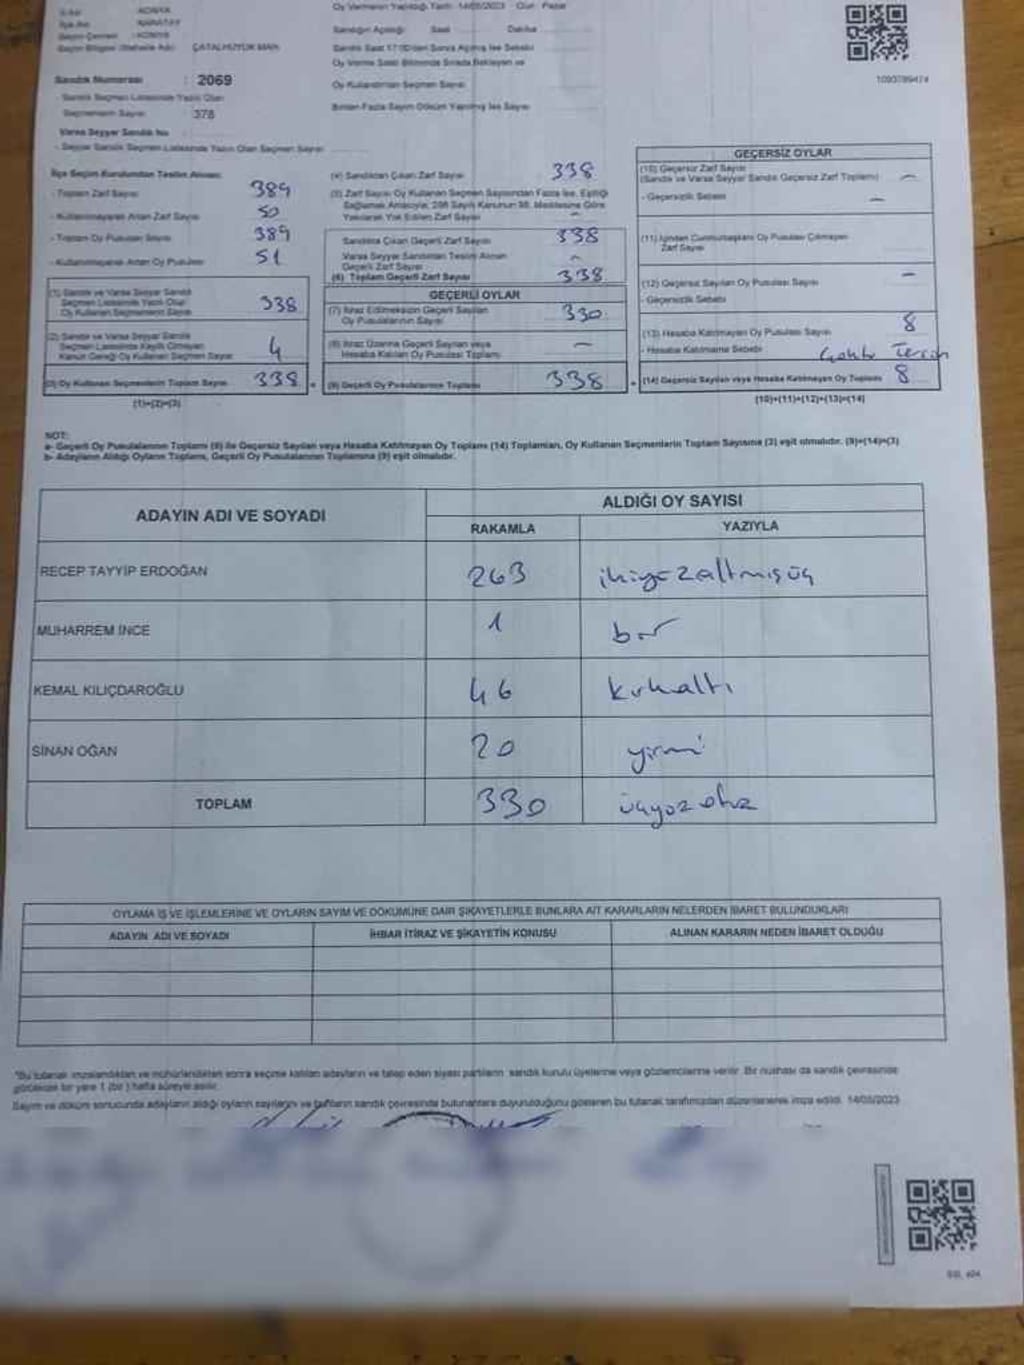 İli Adı KONYA
İlçe Adı KARATAY
Seçim Çevresi : KONYA
Seçim Bölgesi (Mahalle Adı) ÇATALHÜYÜK MAH.
Sandık Numarası : 2069
- Sandık Seçmen Listesinde Yazılı Olan
Seçmenlerin Sayısı 378
Varsa Seyyar Sandık No
- Seyyar Sandık Seçmen Listesinde Yazılı Olan Seçmen Sayısı
Oy Vermenin Yapıldığı Tarih: 14/05/2023 Gün: Pazar
Sandığın Açıldığı Saat Dakika
Sandık Saat 17:00'den Sonra Açılmış İse Sebebi
Oy Verme Saati Bitiminde Sırada Bekleyen ve
Oy Kullandırılan Seçmen Sayısı
Birden Fazla Sayım Döküm Yapılmış İse Sayısı
1093789474
İlçe Seçim Kurulundan Teslim Alınan:
- Toplam Zarf Sayısı 389
- Kullanılmayarak Artan Zarf Sayısı 50
- Toplam Oy Pusulası Sayısı 389
- Kullanılmayarak Artan Oy Pusulası 51
(1) Sandık ve Varsa Seyyar Sandık
Seçmen Listesinde Yazılı Olan
Oy Kullanan Seçmenlerin Sayısı 338
(2) Sandık ve Varsa Seyyar Sandık
Seçmen Listesinde Kaydı Olmayan
Kanun Gereği Oy Kullanan Seçmen Sayısı 4
(3) Oy Kullanan Seçmenlerin Toplam Sayısı 338
(1)+(2)=(3)
(4) Sandıktan Çıkan Zarf Sayısı 338
(5) Zarf Sayısı Oy Kullanan Seçmen Sayısından Fazla İse, Eşitliği
Sağlamak Amacıyla; 298 Sayılı Kanunun 98. Maddesine Göre
Yakılarak Yok Edilen Zarf Sayısı -
Sandıkta Çıkan Geçerli Zarf Sayısı 338
Varsa Seyyar Sandıktan Teslim Alınan
Geçerli Zarf Sayısı -
(6) Toplam Geçerli Zarf Sayısı 338
GEÇERLİ OYLAR
(7) İtiraz Edilmeksizin Geçerli Sayılan
Oy Pusulalarının Sayısı 330
(8) İtiraz Üzerine Geçerli Sayılan veya
Hesaba Katılan Oy Pusulası Toplamı -
(9) Geçerli Oy Pusulalarının Toplamı 338
GEÇERSİZ OYLAR
(10) Geçersiz Zarf Sayısı
(Sandık ve Varsa Seyyar Sandık Geçersiz Zarf Toplamı) -
- Geçersizlik Sebebi -
(11) İçinden Cumhurbaşkanı Oy Pusulası Çıkmayan
Zarf Sayısı
(12) Geçersiz Sayılan Oy Pusulası Sayısı -
- Geçersizlik Sebebi
(13) Hesaba Katılmayan Oy Pusulası Sayısı 8
- Hesaba Katılmama Sebebi
(14) Geçersiz Sayılan veya Hesaba Katılmayan Oy Toplamı 8
(10)+(11)+(12)+(13)=(14)
NOT:
a- Geçerli Oy Pusulalarının Toplamı (9) ile Geçersiz Sayılan veya Hesaba Katılmayan Oy Toplamı (14) Toplamları, Oy Kullanan Seçmenlerin Toplam Sayısına (3) eşit olmalıdır. (9)+(14)=(3)
b- Adayların Aldığı Oyların Toplamı, Geçerli Oy Pusulalarının Toplamına (9) eşit olmalıdır.
ADAYIN ADI VE SOYADI
ALDIĞI OY SAYISI
RAKAMLA YAZIYLA
RECEP TAYYİP ERDOĞAN 263 ikiyüzaltmışüç
MUHARREM İNCE 1 bir
KEMAL KILIÇDAROĞLU 46 kırkaltı
SİNAN OĞAN 20 yirmi
TOPLAM 330 üçyüzotuz
OYLAMA İŞ VE İŞLEMLERİNE VE OYLARIN SAYIM VE DÖKÜMÜNE DAİR ŞİKAYETLERLE BUNLARA AİT KARARLARIN NELERDEN İBARET BULUNDUKLARI
ADAYIN ADI VE SOYADI İHBAR İTİRAZ VE ŞİKAYETİN KONUSU ALINAN KARARIN NEDEN İBARET OLDUĞU
*Bu tutanak imzalandıktan ve mühürlendikten sonra seçime katılan adayların ve talep eden siyasi partilerin sandık kurulu üyelerine veya gözlemcilerine verilir. Bir nüshası da sandık çevresinde
görülecek bir yere 1 (bir) hafta süreyle asılır.
Sayım ve döküm sonucunda adayların aldığı oyların sayılarını ve tasnifin sandık çevresinde bulunanlara duyurulduğunu gösteren bu tutanak tarafımızdan düzenlenerek imza edildi. 14/05/2023